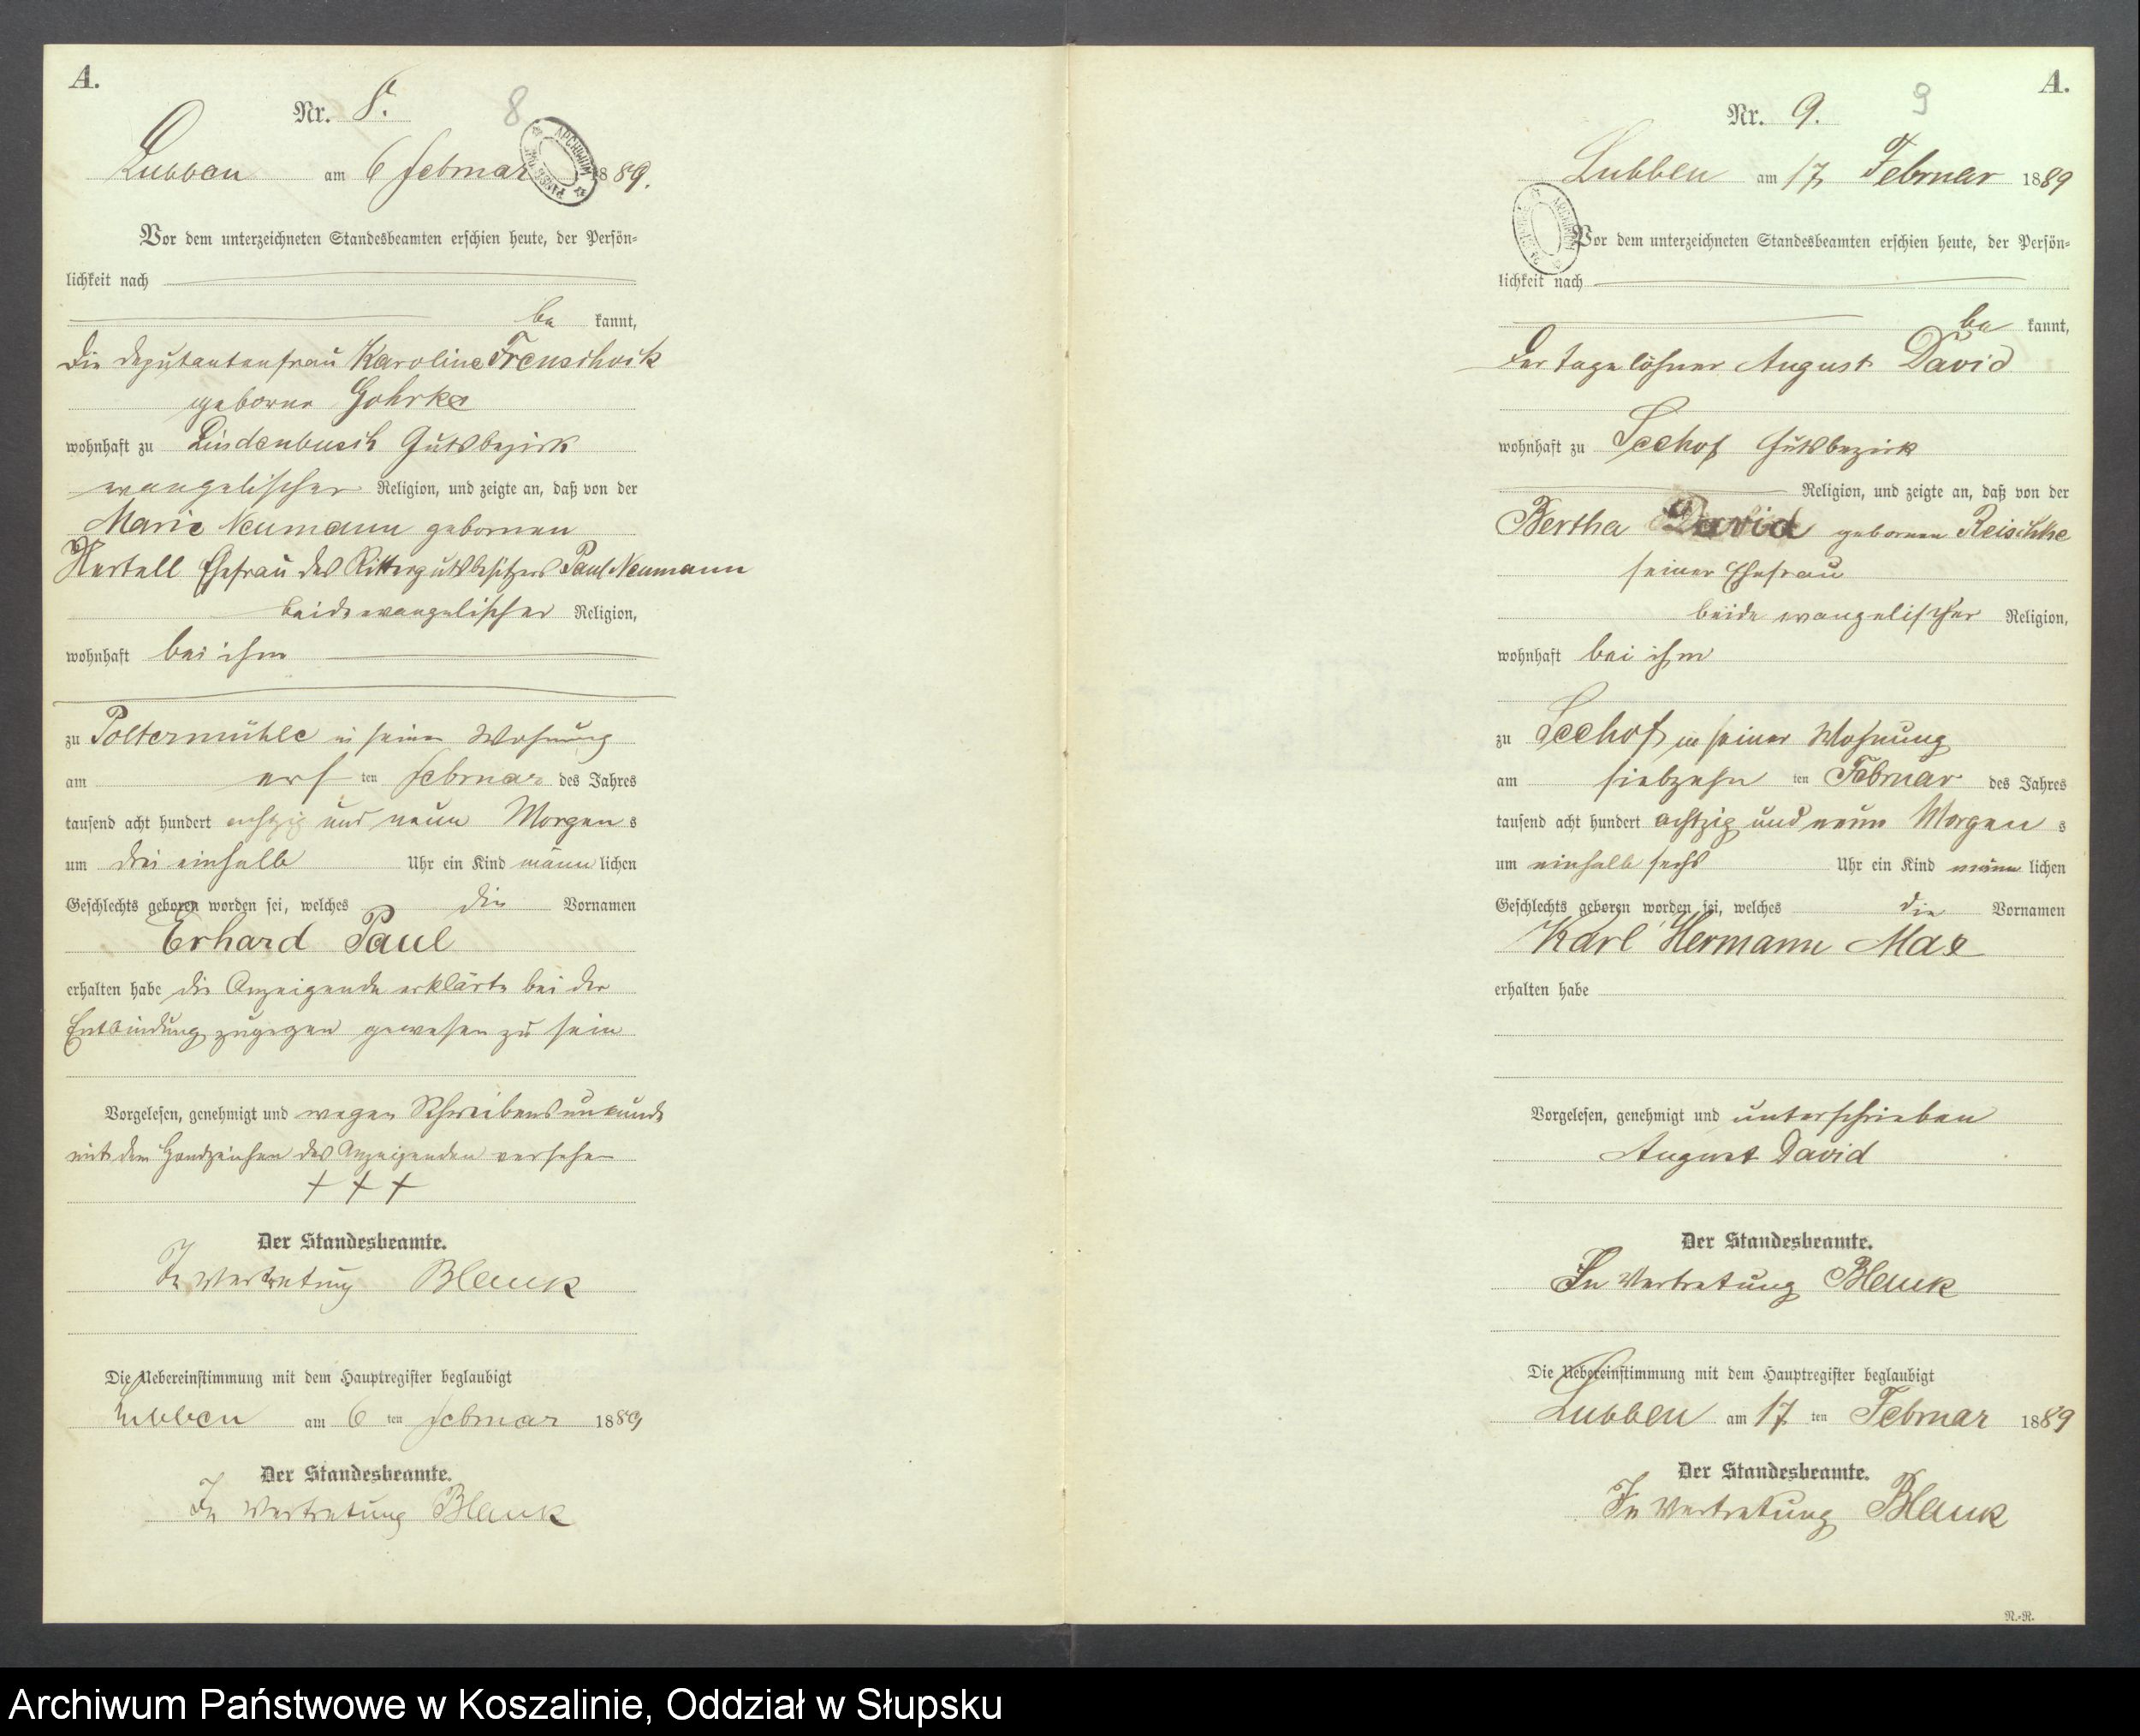 A.
Nr. 8.
8
Lubben am 6 Februar 1889.
Vor dem unterzeichneten Standesbeamten erschien heute, der Persön=
lichkeit nach
be kannt,
die Deputantenfrau Karoline Frenschock
geborne Gohrke
wohnhaft zu Lindenbusch Gutsbezirk
evangelischer Religion, und zeigte an, daß von der
Marie Neumann gebornen
Hertell Ehefrau des Rittergutsbesitzers Paul Neumann
beide evangelischer Religion,
wohnhaft bei ihm
zu Poltermühle in seiner Wohnung
am ersten Februar des Jahres
tausend acht hundert achtzig und neun Morgens
um drei einhalb Uhr ein Kind männlichen
Geschlechts geboren worden sei, welches die Vornamen
Erhard Paul
erhalten habe die Anzeigende erklärte bei der
Entbindung zugegen gewesen zu sein
Vorgelesen, genehmigt und wegen Schreibensunkunde
mit dem Handzeichen des Anzeigenden versehen
+ + +
Der Standesbeamte.
In Vertretung Blank
Die Uebereinstimmung mit dem Hauptregister beglaubigt
Lubben am 6 ten Februar 1889
Der Standesbeamte.
In Vertretung Blank
A.
Nr. 9.
9
Lubben am 17 Februar 1889
Vor dem unterzeichneten Standesbeamten erschien heute, der Persön=
lichkeit nach
be kannt,
der Tagelöhner August David
wohnhaft zu Seehof Gutsbezirk
Religion, und zeigte an, daß von der
Bertha David gebornen Reischke
seiner Ehefrau
beide evangelischer Religion,
wohnhaft bei ihm
zu Seehof in seiner Wohnung
am siebzehn ten Februar des Jahres
tausend acht hundert achtzig und neun Morgens
um einhalb sechs Uhr ein Kind männlichen
Geschlechts geboren worden sei, welches die Vornamen
Karl Hermann Max
erhalten habe
Vorgelesen, genehmigt und unterschrieben
August David
Der Standesbeamte.
In Vertretung Blank
Die Uebereinstimmung mit dem Hauptregister beglaubigt
Lubben am 17 ten Februar 1889
Der Standesbeamte.
In Vertretung Blank
N.-R.
Archiwum Państwowe w Koszalinie, Oddział w Słupsku